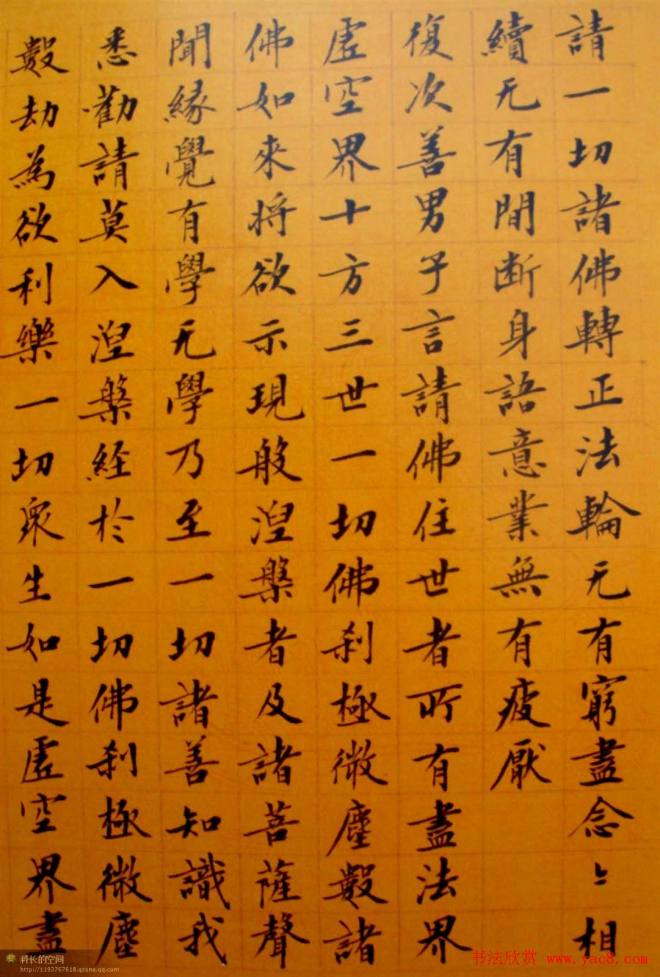 請一切諸佛轉正法輪无有窮盡念〻相
續无有間断身語意業無有疲厭
復次善男子言請佛住世者所有盡法界
虛空界十方三世一切佛刹極微塵數諸
佛如來将欲示現般涅槃者及諸菩薩聲
聞緣覺有學无學乃至一切諸善知識我
悉勸請莫入涅槃経於一切佛刹極微塵
數劫為欲利樂一切眾生如是虛空界盡
科长的空间
http://1193767618.qzone.qq.com
书法欣赏 www.yac8.com